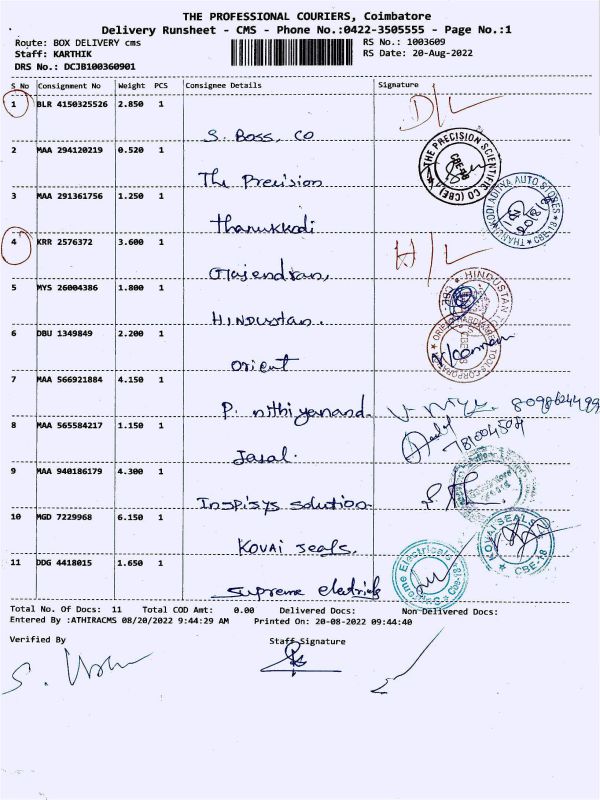 THE PROFESSIONAL COURIERS, Coimbatore
Delivery Runsheet - CMS - Phone No.:0422-3505555 - Page No.:1
Route: BOX DELIVERY cms
RS No.: 1003609
Staff: KARTHIK
RS Date: 20-Aug-2022
DRS No.: DCJB100360901
S No Consignment No Weight PCS Consignee Details Signature
1 BLR 4150325526 2.850 1
D/L
S. Boss, CO
2 MAA 294120219 0.520 1
THE PRECISION SCIENTIFIC CO (CBE)
The Precision
3 MAA 291361756 1.250 1
THANUKKODI ADITYA AUTO STORES
Thanukkodi
4 KRR 2576372 3.600 1
H/L
Gajendran,
5 MYS 26004386 1.800 1
HINDUSTAN
Hindustan.
6 DBU 1349849 2.200 1
ORIENT HARDWARE TOOLS CORPORATION
Orient
7 MAA 566921884 4.150 1
P. nithiyanand.
8 MAA 565584217 1.150 1
Jasal.
9 MAA 940186179 4.300 1
Inspisys solution
10 MGD 7229968 6.150 1
KOVAI SEALS CBE-18
Kovai seals.
11 DDG 4418015 1.650 1
Supreme eletricls
Total No. Of Docs: 11 Total COD Amt: 0.00 Delivered Docs: Non Delivered Docs:
Entered By :ATHIRACMS 08/20/2022 9:44:29 AM Printed On: 20-08-2022 09:44:40
Verified By Staff Signature